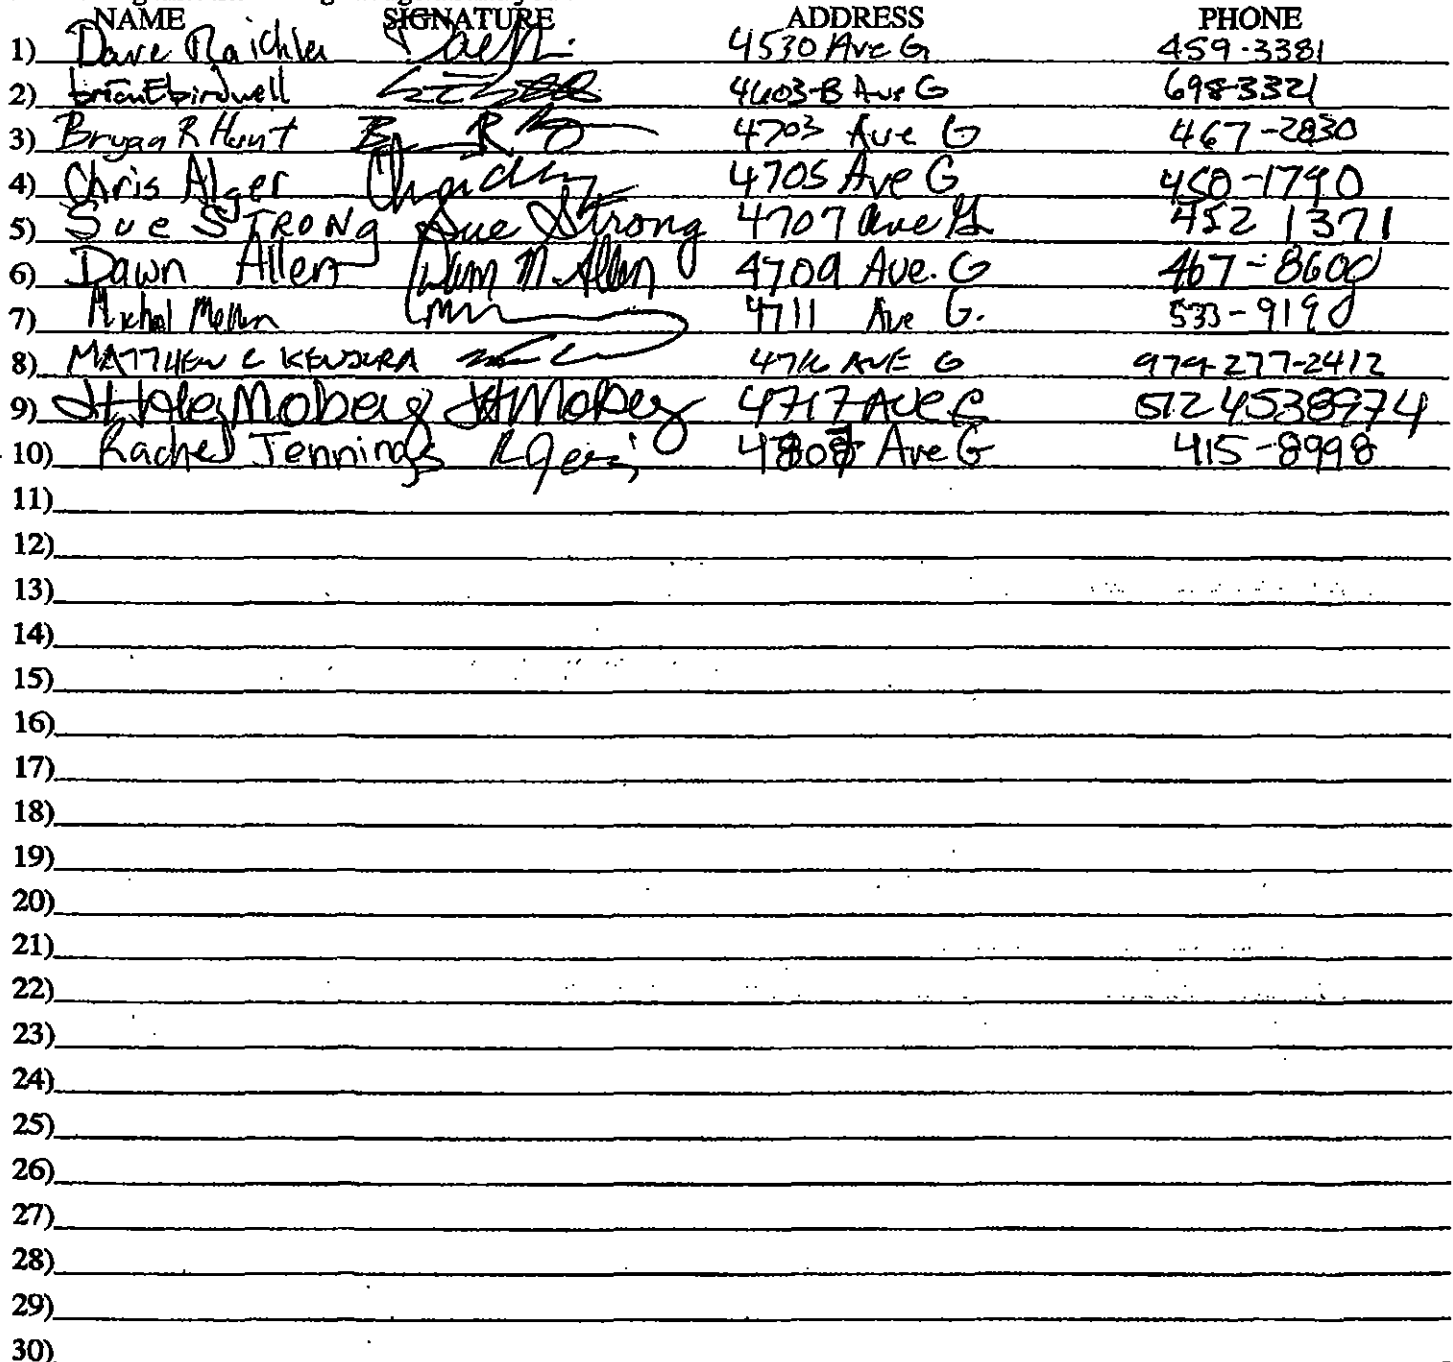 NAME SIGNATURE ADDRESS PHONE
1) Dave 4530 Ave G 459-3381
2) brianEbirdwell 4603-B Ave G 698-3321
3) Bryan R Hunt 4703 Ave G 467-2830
4) Chris Alger 4705 Ave G 450-1790
5) Sue STRONg Sue Strong 4707 Ave G 452 1371
6) Dawn Allen Dawn M. Allen 4709 Ave. G 467-8600
7) 4711 Ave G. 533-9190
8) MATTHEW C 4716 AVE G 979-277-2412
9) Moberg 4717 AVE G 512 4538974
10) Rachel Jennings Ave G 415-8998
11)
12)
13)
14)
15)
16)
17)
18)
19)
20)
21)
22)
23)
24)
25)
26)
27)
28)
29)
30)